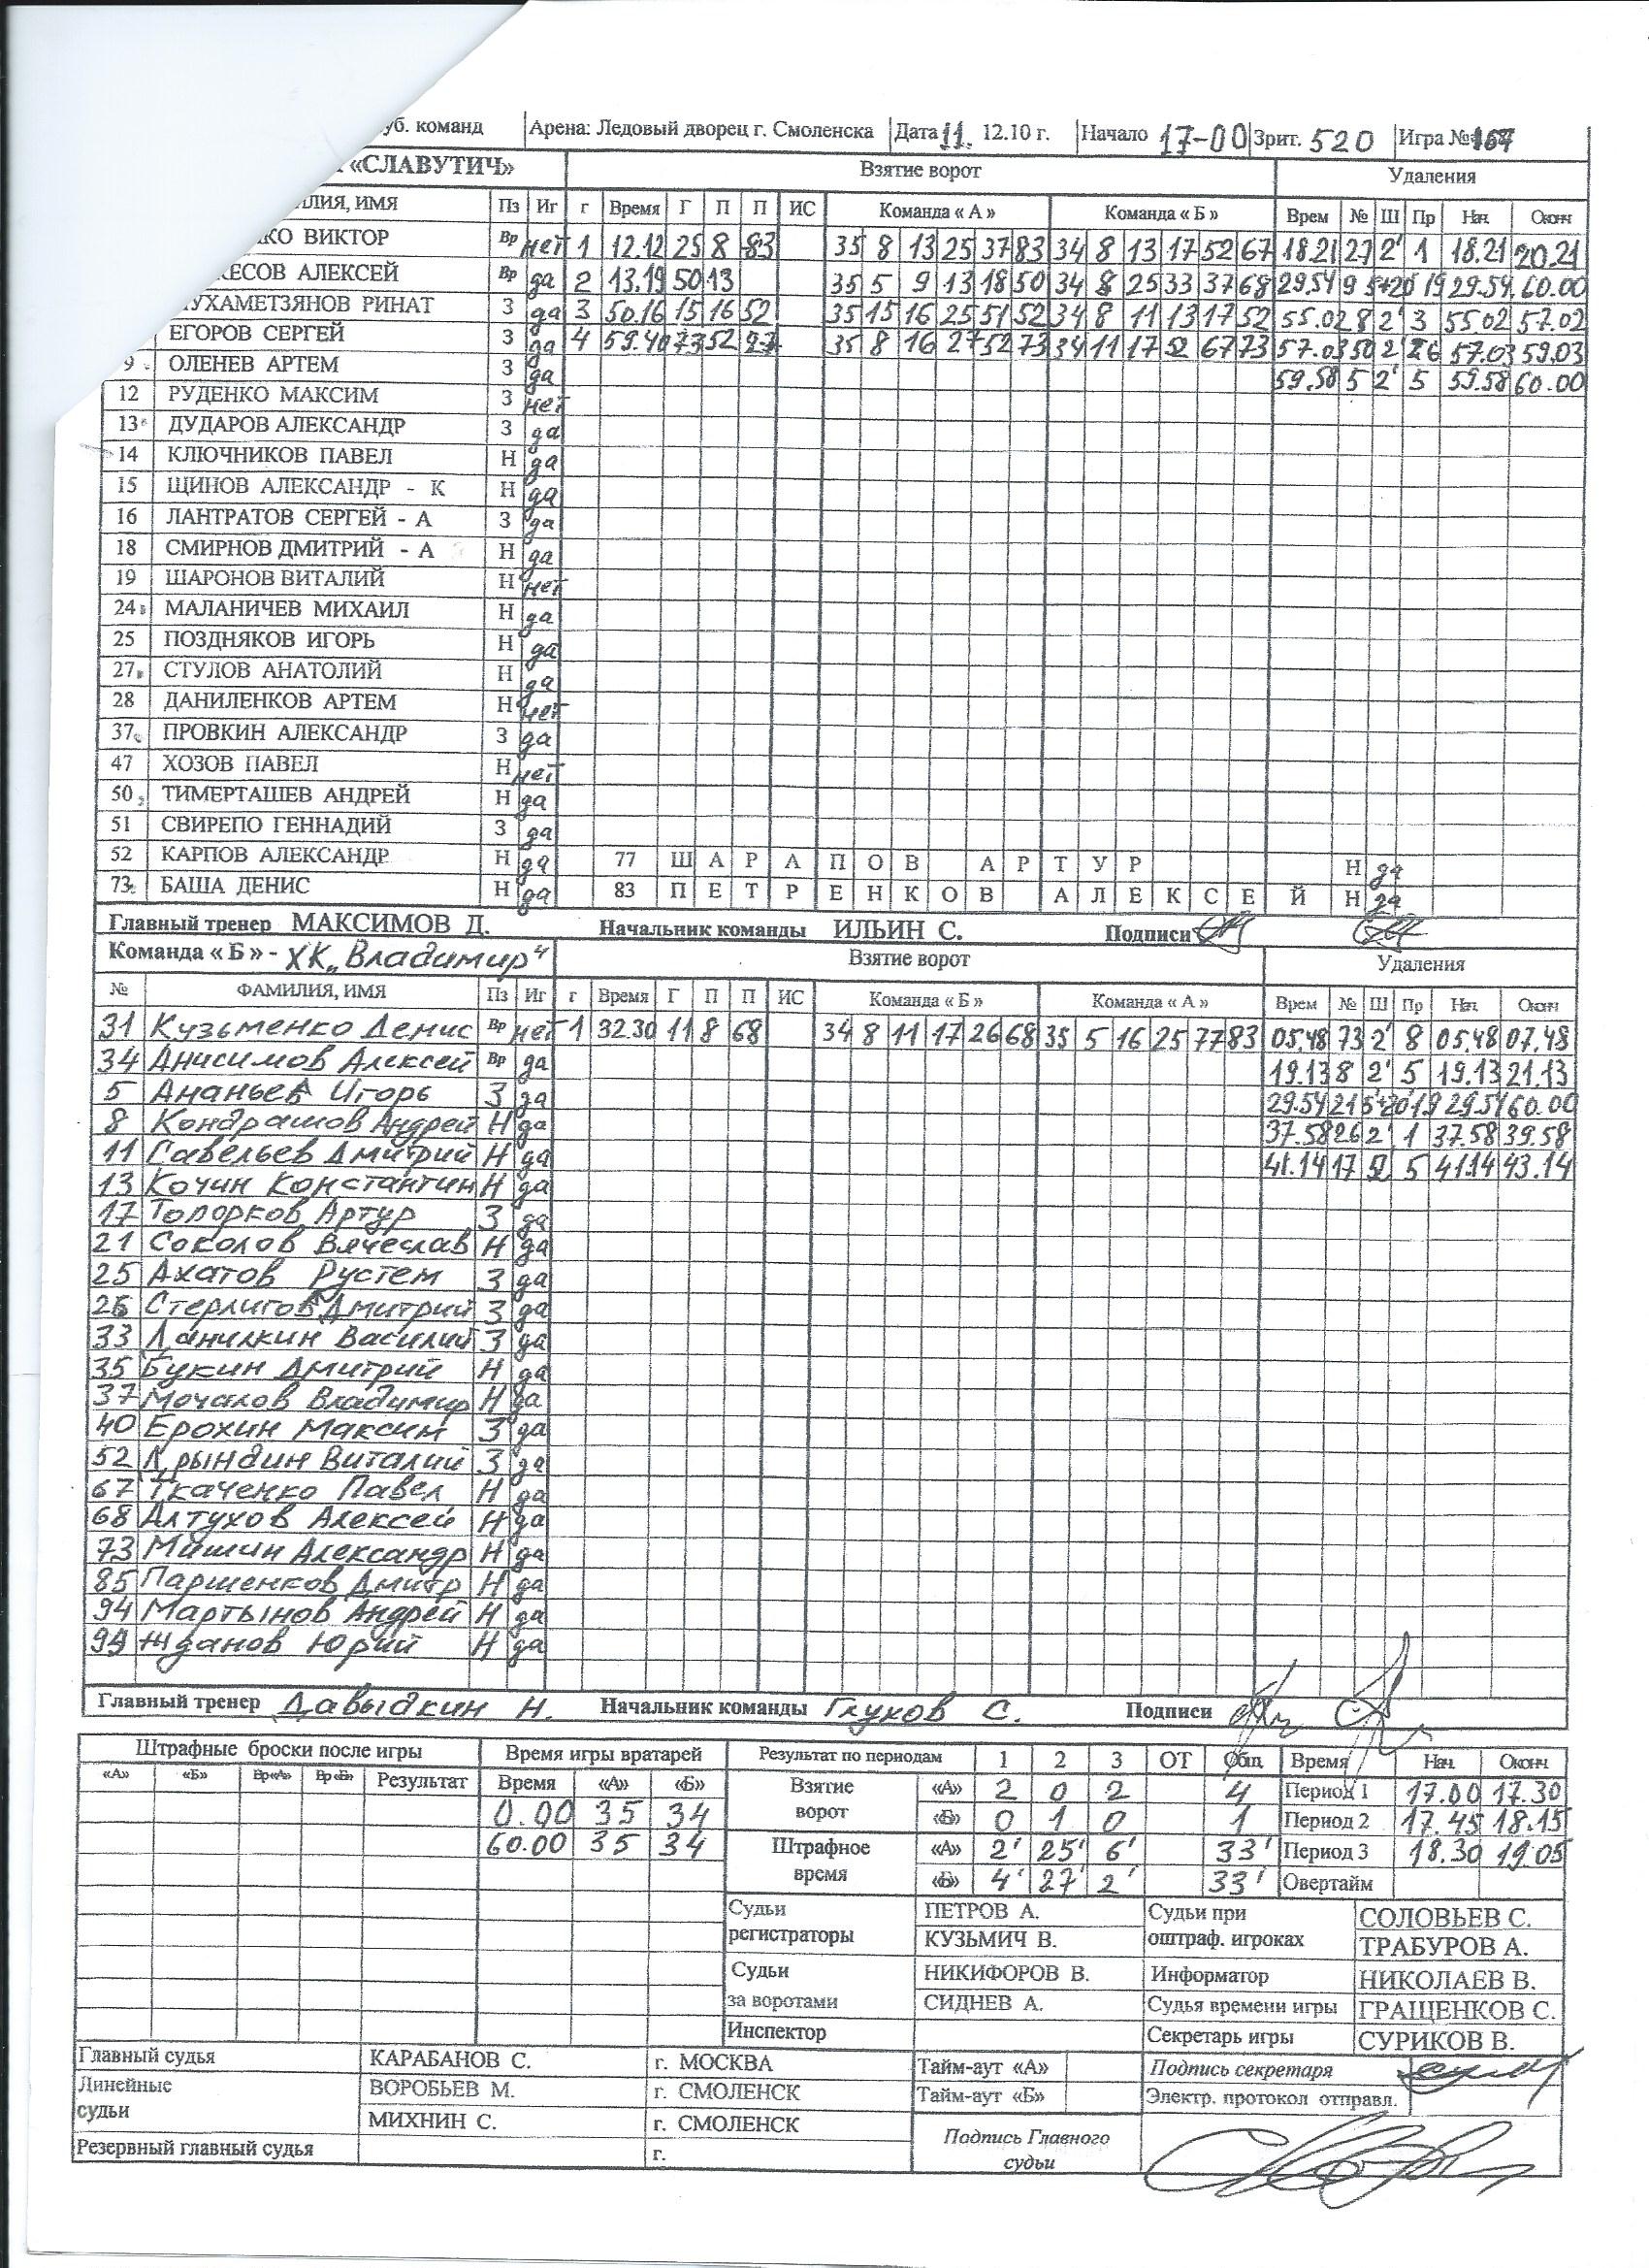 уб. команд Арена: Ледовый дворец г. Смоленска Дата 11. 12.10 г. Начало 17-00 Зрит. 520 Игра №
«СЛАВУТИЧ» Взятие ворот Удаления
ИЛИЯ, ИМЯ Пз Иг г Время Г П П ИС Команда « А » Команда « Б » Врем № Ш Пр Нач. Оконч
КО ВИКТОР Вр нет 1 12.12 25 8 83 35 8 13 25 37 83 34 8 13 17 52 67 18.21 27 2' 1 18.21 20.21
КЕСОВ АЛЕКСЕЙ Вр да 2 13.19 50 13 35 5 9 13 18 50 34 8 25 33 37 68 29.54 9 5+20 19 29.54 60.00
УХАМЕТЗЯНОВ РИНАТ З да 3 50.16 15 16 52 35 15 16 25 51 52 34 8 11 13 17 52 55.02 8 2' 3 55.02 57.02
ЕГОРОВ СЕРГЕЙ З да 4 59.40 73 52 27 35 8 16 27 52 73 34 11 17 52 67 73 57.03 50 2' 26 57.03 59.03
9 ОЛЕНЕВ АРТЕМ З да 59.58 5 2' 5 59.58 60.00
12 РУДЕНКО МАКСИМ З нет
13 ДУДАРОВ АЛЕКСАНДР З да
14 КЛЮЧНИКОВ ПАВЕЛ Н да
15 ЩИНОВ АЛЕКСАНДР - К Н да
16 ЛАНТРАТОВ СЕРГЕЙ - А З да
18 СМИРНОВ ДМИТРИЙ - А Н да
19 ШАРОНОВ ВИТАЛИЙ Н нет
24 МАЛАНИЧЕВ МИХАИЛ Н да
25 ПОЗДНЯКОВ ИГОРЬ Н да
27 СТУЛОВ АНАТОЛИЙ Н да
28 ДАНИЛЕНКОВ АРТЕМ Н нет
37 ПРОВКИН АЛЕКСАНДР З да
47 ХОЗОВ ПАВЕЛ Н нет
50 ТИМЕРТАШЕВ АНДРЕЙ Н да
51 СВИРЕПО ГЕННАДИЙ З да
52 КАРПОВ АЛЕКСАНДР Н да 77 ШАРАПОВ АРТУР Н да
73 БАША ДЕНИС Н да 83 ПЕТРЕНКОВ АЛЕКСЕЙ Н да
Главный тренер МАКСИМОВ Д. Начальник команды ИЛЬИН С. Подписи
Команда « Б » - ХК „Владимир" Взятие ворот Удаления
№ ФАМИЛИЯ, ИМЯ Пз Иг г Время Г П П ИС Команда « Б » Команда « А » Врем № Ш Пр Нач. Оконч
31 Кузьменко Денис Вр нет 1 32.30 11 8 68 34 8 11 17 26 68 35 5 16 25 77 83 05.48 73 2' 8 05.48 07.48
34 Анисимов Алексей Вр да 19.13 8 2' 5 19.13 21.13
5 Ананьев А Игорь З да 29.54 21 5+20' 19 29.54 60.00
8 Кондрашов Андрей Н да 37.58 26 2' 1 37.58 39.58
11 Савельев Дмитрий Н да 41.14 17 2' 5 41.14 43.14
13 Кочин Константин Н да
17 Топорков Артур З да
21 Соколов Вячеслав Н да
25 Ахатов Рустем З да
26 Стерлигов Дмитрий З да
33 Данилкин Василий З да
35 Букин Дмитрий Н да
37 Мочалов Владимир Н да
40 Ерохин Максим З да
52 Дрындин Виталий З да
67 Ткаченко Павел Н да
68 Алтухов Алексей Н да
73 Мишин Александр Н да
85 Паршенков Дмитр Н да
94 Мартынов Андрей Н да
Жданов Юрий Н да
Главный тренер Давыдкин Н. Начальник команды Глухов С. Подписи
Штрафные броски после игры Время игры вратарей Результат по периодам 1 2 3 ОТ Общ Время Нач. Оконч
«А» «Б» Вр«А» Вр«Б» Результат Время «А» «Б» Взятие ворот «А» 2 0 2 4 Период 1 17.00 17.30
0.00 35 34 «Б» 0 1 0 1 Период 2 17.45 18.15
60.00 35 34 Штрафное время «А» 2' 25' 6' 33' Период 3 18.30 19.05
«Б» 4' 27' 2' 33' Овертайм
Судьи регистраторы ПЕТРОВ А. Судьи при оштраф. игроках СОЛОВЬЕВ С.
КУЗЬМИЧ В. ТРАБУРОВ А.
Судьи за воротами НИКИФОРОВ В. Информатор НИКОЛАЕВ В.
СИДНЕВ А. Судья времени игры ГРАЩЕНКОВ С.
Инспектор Секретарь игры СУРИКОВ В.
Главный судья КАРАБАНОВ С. г. МОСКВА Тайм-аут «А» Подпись секретаря
Линейные судьи ВОРОБЬЕВ М. г. СМОЛЕНСК Тайм-аут «Б» Электр. протокол отправл.
МИХНИН С. г. СМОЛЕНСК Подпись Главного судьи
Резервный главный судья г.